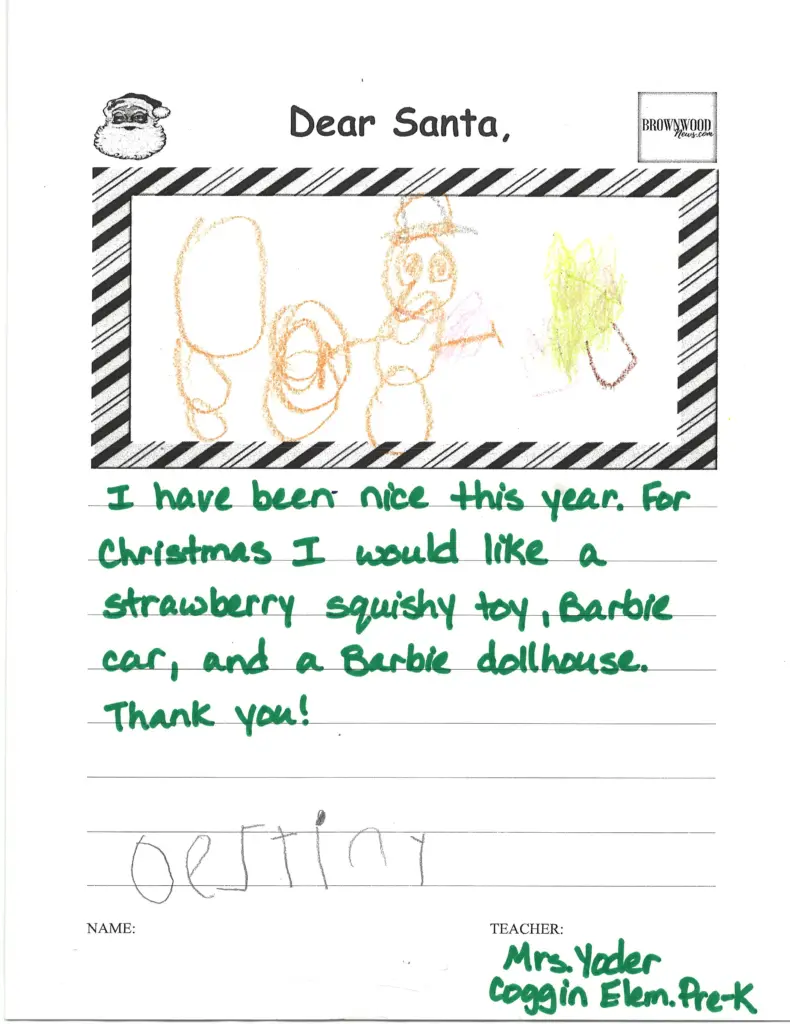 Dear Santa,
BROWNWOOD
News.com
I have been nice this year. For
Christmas I would like a
strawberry squishy toy, Barbie
car, and a Barbie dollhouse.
Thank you!
Destiny
NAME:
TEACHER:
Mrs. Yoder
Coggin Elem. Pre-K